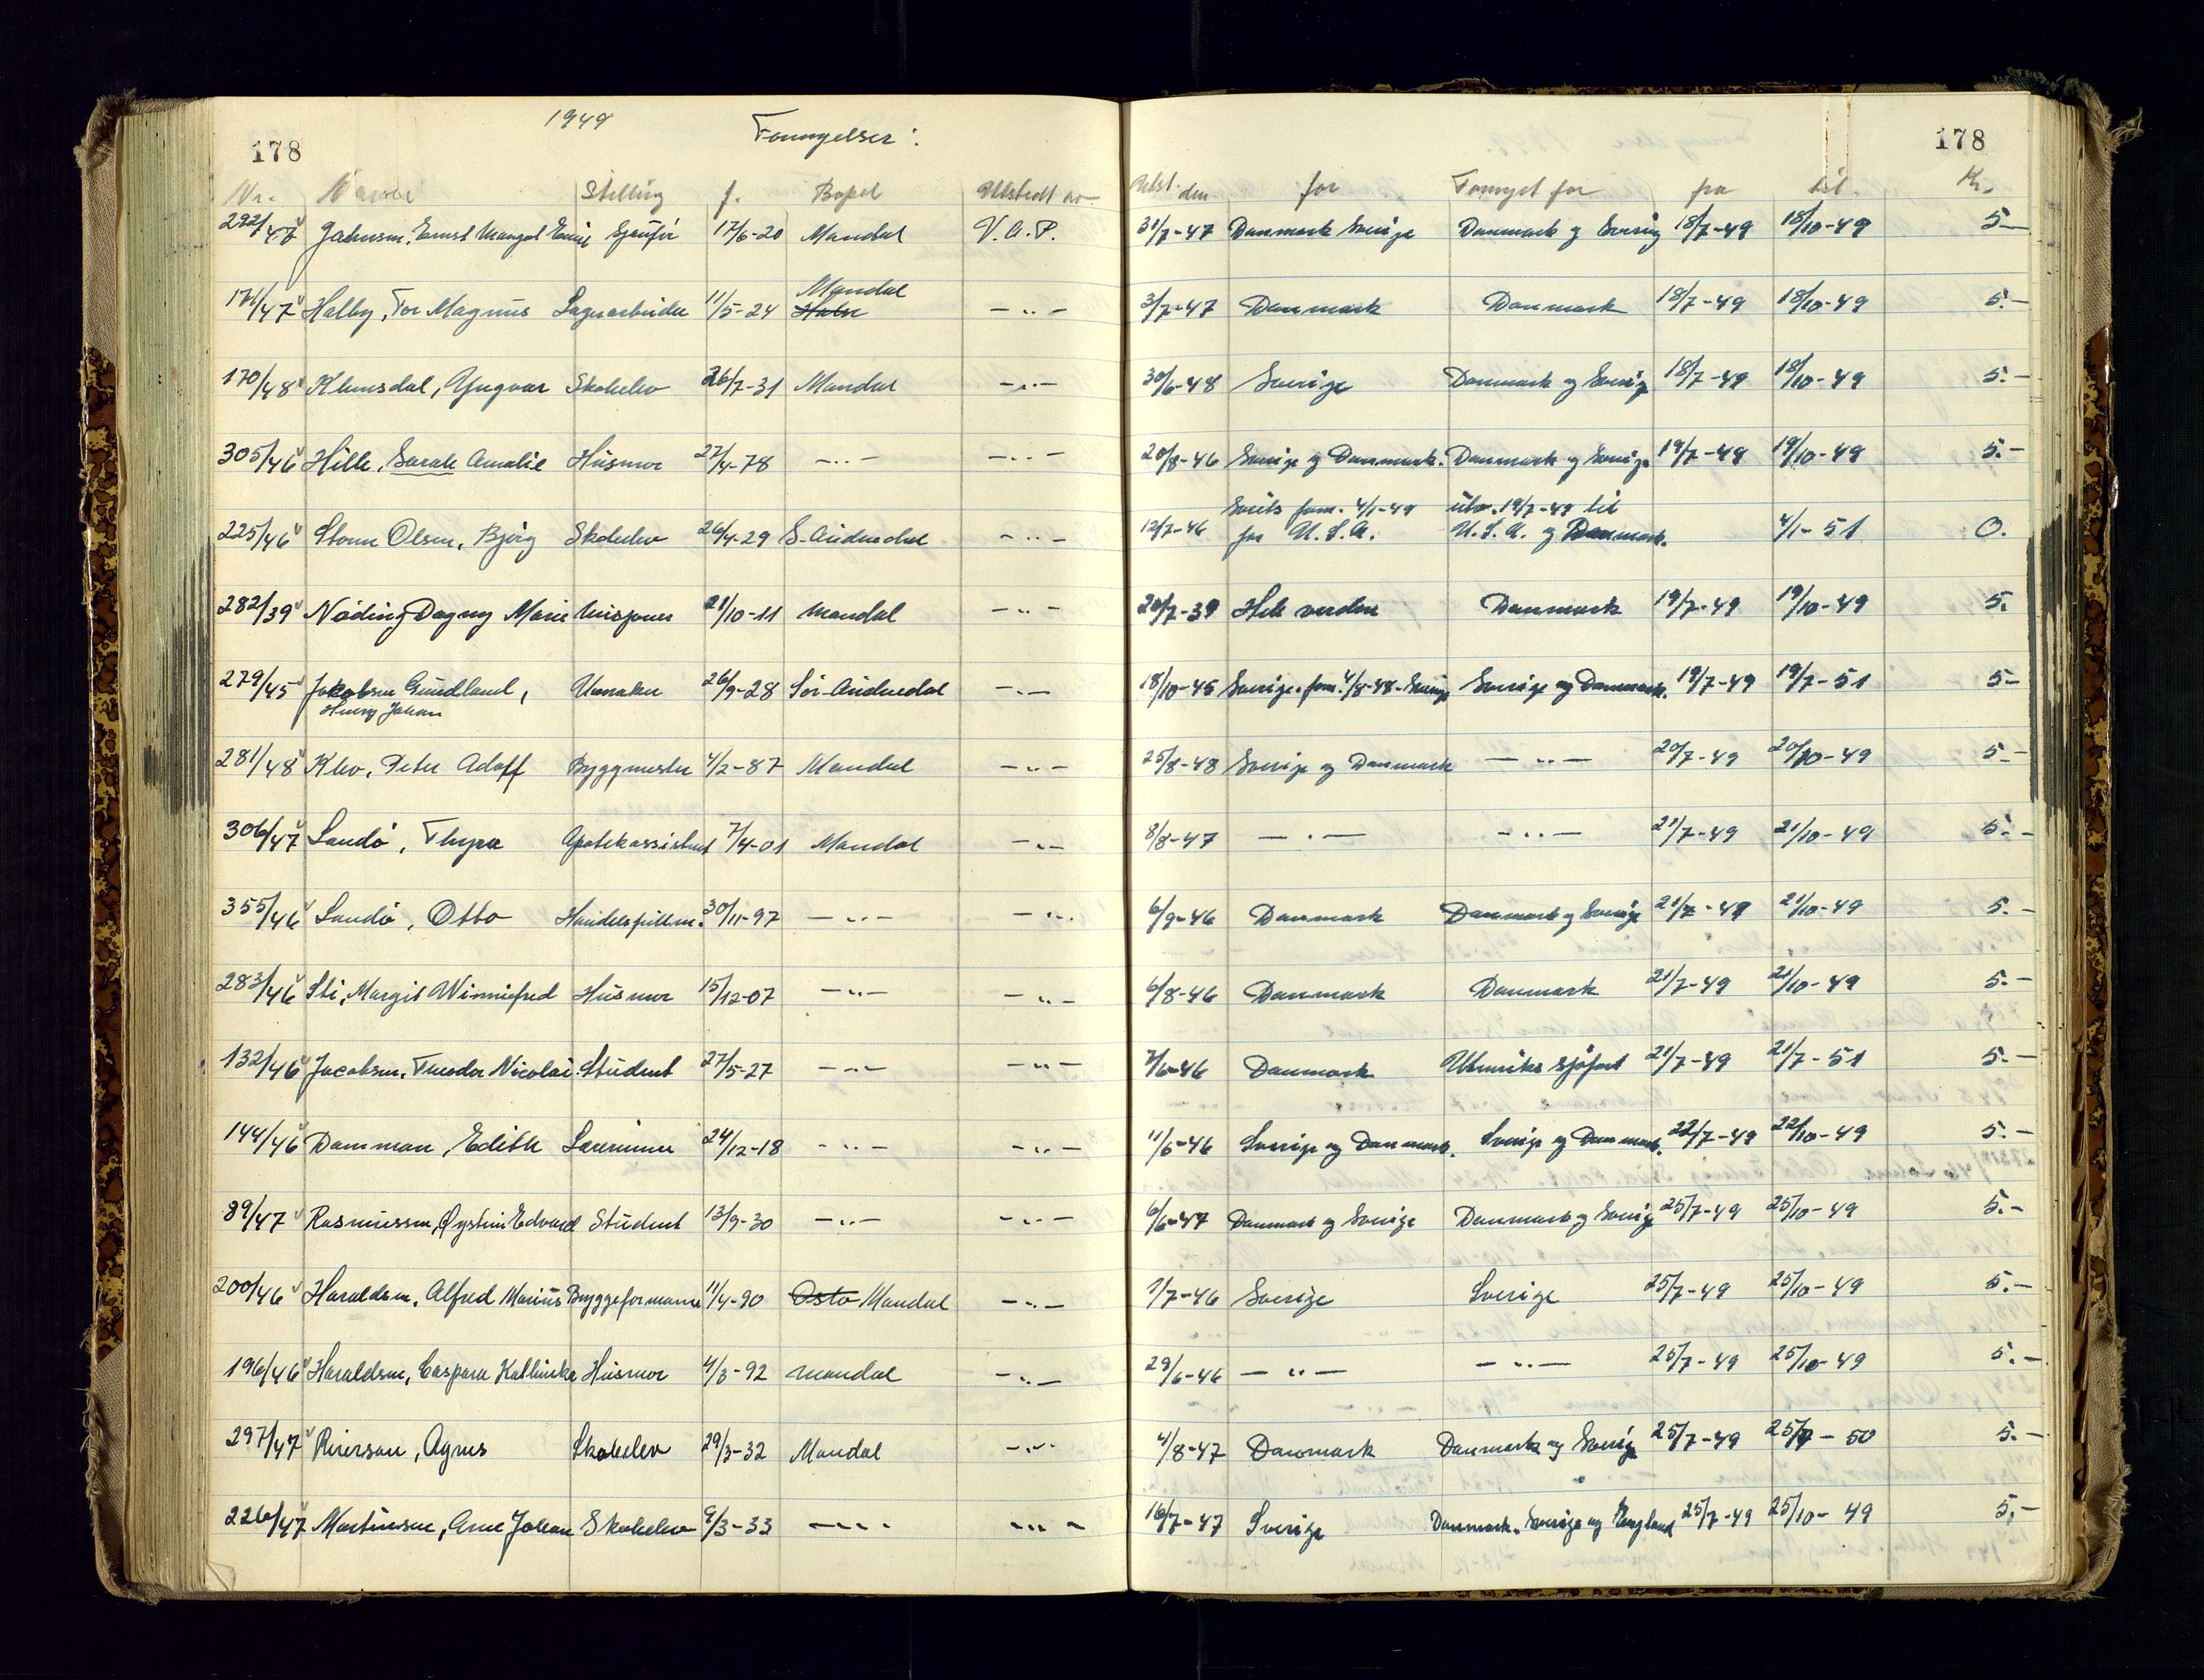 178 1949 Fornyelser: 178
Nr. Navn Stilling f. Bopel Utstedt av Utst. den for Fornyet for fra til Kr.
292/47 Jahnsen, Ernst Sjåfør 17/6-20 Mandal V.A.P. 31/7-47 Danmark Sverige Danmark og Sverig 18/7-49 18/10-49 5.-
171/47 Halby, Tor Magnus Lagerarbeider 11/5-24 Mandal 3/7-47 Danmark Danmark 18/7-49 18/10-49 5.-
170/48 Klemsdal, Yngvar Skoleelev 26/7-31 Mandal -„- 30/6-48 Sverige Danmark og Sverig 18/7-49 18/10-49 5.-
305/46 Hille, Sarah Amalie Husmor 27/4-78 -„- -„- 20/8-46 Sverige og Danmark. Danmark og Sverige 19/7-49 19/10-49 5.-
225/46 Storm Olsen, Bjørg Skoleelev 26/4-29 S-Audnedal -„- 12/7-46 forn. 4/1-49 for U.S.A. utv. 19/7-49 til U.S.A. og Danmark. 4/1-51 0.
282/39 Nøding Dagny Marie 21/10-11 Mandal -„- 20/7-39 Hele verden Danmark 19/7-49 19/10-49 5.
279/45 Jakobsen Gundland, Henry Johan Urmaker 26/9-28 Sør-Audnedal -„- 18/10-45 Sverige. forn. 4/8-48-Sverige Sverige og Danmark. 19/7-49 19/7-51 5-
281/48 Klev, Peter Adolf Byggmester 4/2-87 Mandal -„- 25/8-48 Sverige og Danmark -„- 20/7-49 20/10-49 5.-
306/47 Sandø, Thyra Apotekassistent 7/4-01 Mandal -„- 8/8-47 -„- -„- 21/7-49 21/10-49 5.-
355/46 Sandø, Otto Handelsfullm. 30/11-97 -„- -„- 6/9-46 Danmark Danmark og Sverige 21/7-49 21/10-49 5.-
283/46 Sti, Margit Winniefred Husmor 15/12-07 -„- -„- 6/8-46 Danmark Danmark 21/7-49 21/10-49 5.-
132/46 Jacobsen, Theodor Nicolai Student 27/5-27 -„- -„- 7/6-46 Danmark Utenriks sjøfart 21/7-49 21/7-51 5.-
144/46 Damman, Edith Lærerinne 24/12-18 -„- -„- 11/6-46 Sverige og Danmark. Sverige og Danmark. 22/7-49 22/10-49 5.-
89/47 Rasmussen, Øystein Edvard Student 13/9-30 -„- -„- 6/6-47 Danmark og Sverige Danmark og Sverig 25/7-49 25/10-49 5.-
200/46 Haraldsen, Alfred Marius Byggeformann 11/4-90 Oslo Mandal -„- 1/7-46 Sverige Sverige 25/7-49 25/10-49 5.-
196/46 Haraldsen, Caspara Kathinka Husmor 4/3-92 Mandal -„- 29/6-46 -„- -„- 25/7-49 25/10-49 5.-
297/47 Reierson, Agnes Skoleelev 29/3-32 Mandal -„- 4/8-47 Danmark Danmark og Sverig 25/7-49 25/7-50 5.-
226/47 Martinsen, Arne Johan Skoleelev 9/3-33 -„- -„- 16/7-47 Sverige Danmark. Sverige og England 25/7-49 25/10-49 5,-